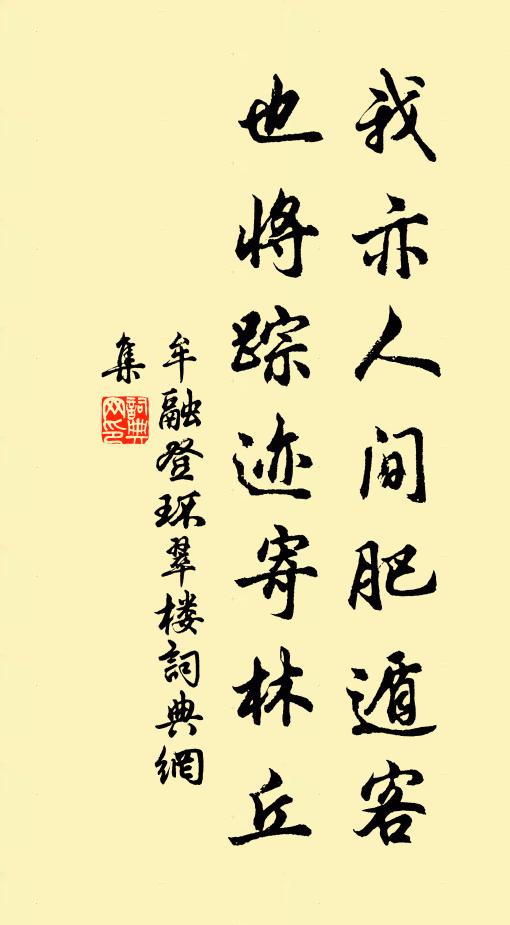 我亦人间肥遁客
也将踪迹寄林丘
牟融登环翠楼詞典網
集
詞典
网印